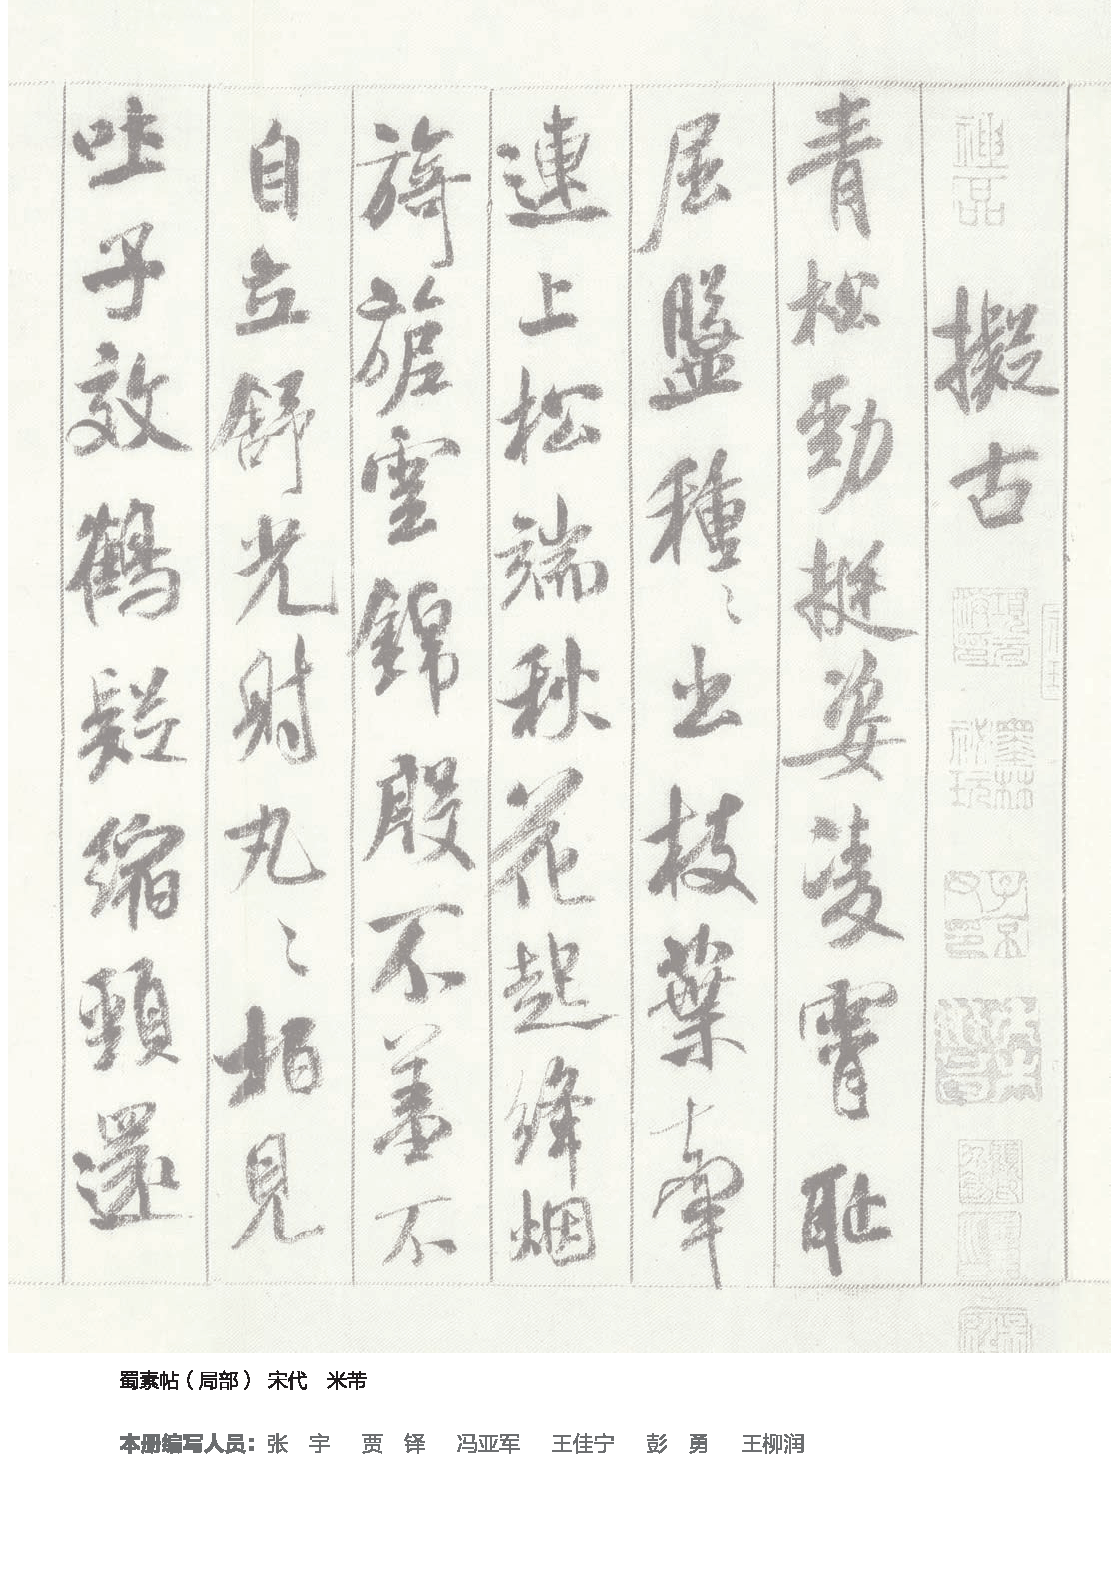 神品
擬古
青松勁挺姿凌霄耻
屈盤種〻出枝葉牽
連上松端秋花起絳烟
旖旎雲錦殷不羞不
自立舒光射丸〻柏見
吐子效鶴疑縮頸還
墨林祕玩
子京父印
蜀素帖（局部） 宋代 米芾
本册编写人员：张 宇 贾 铎 冯亚军 王佳宁 彭 勇 王柳润